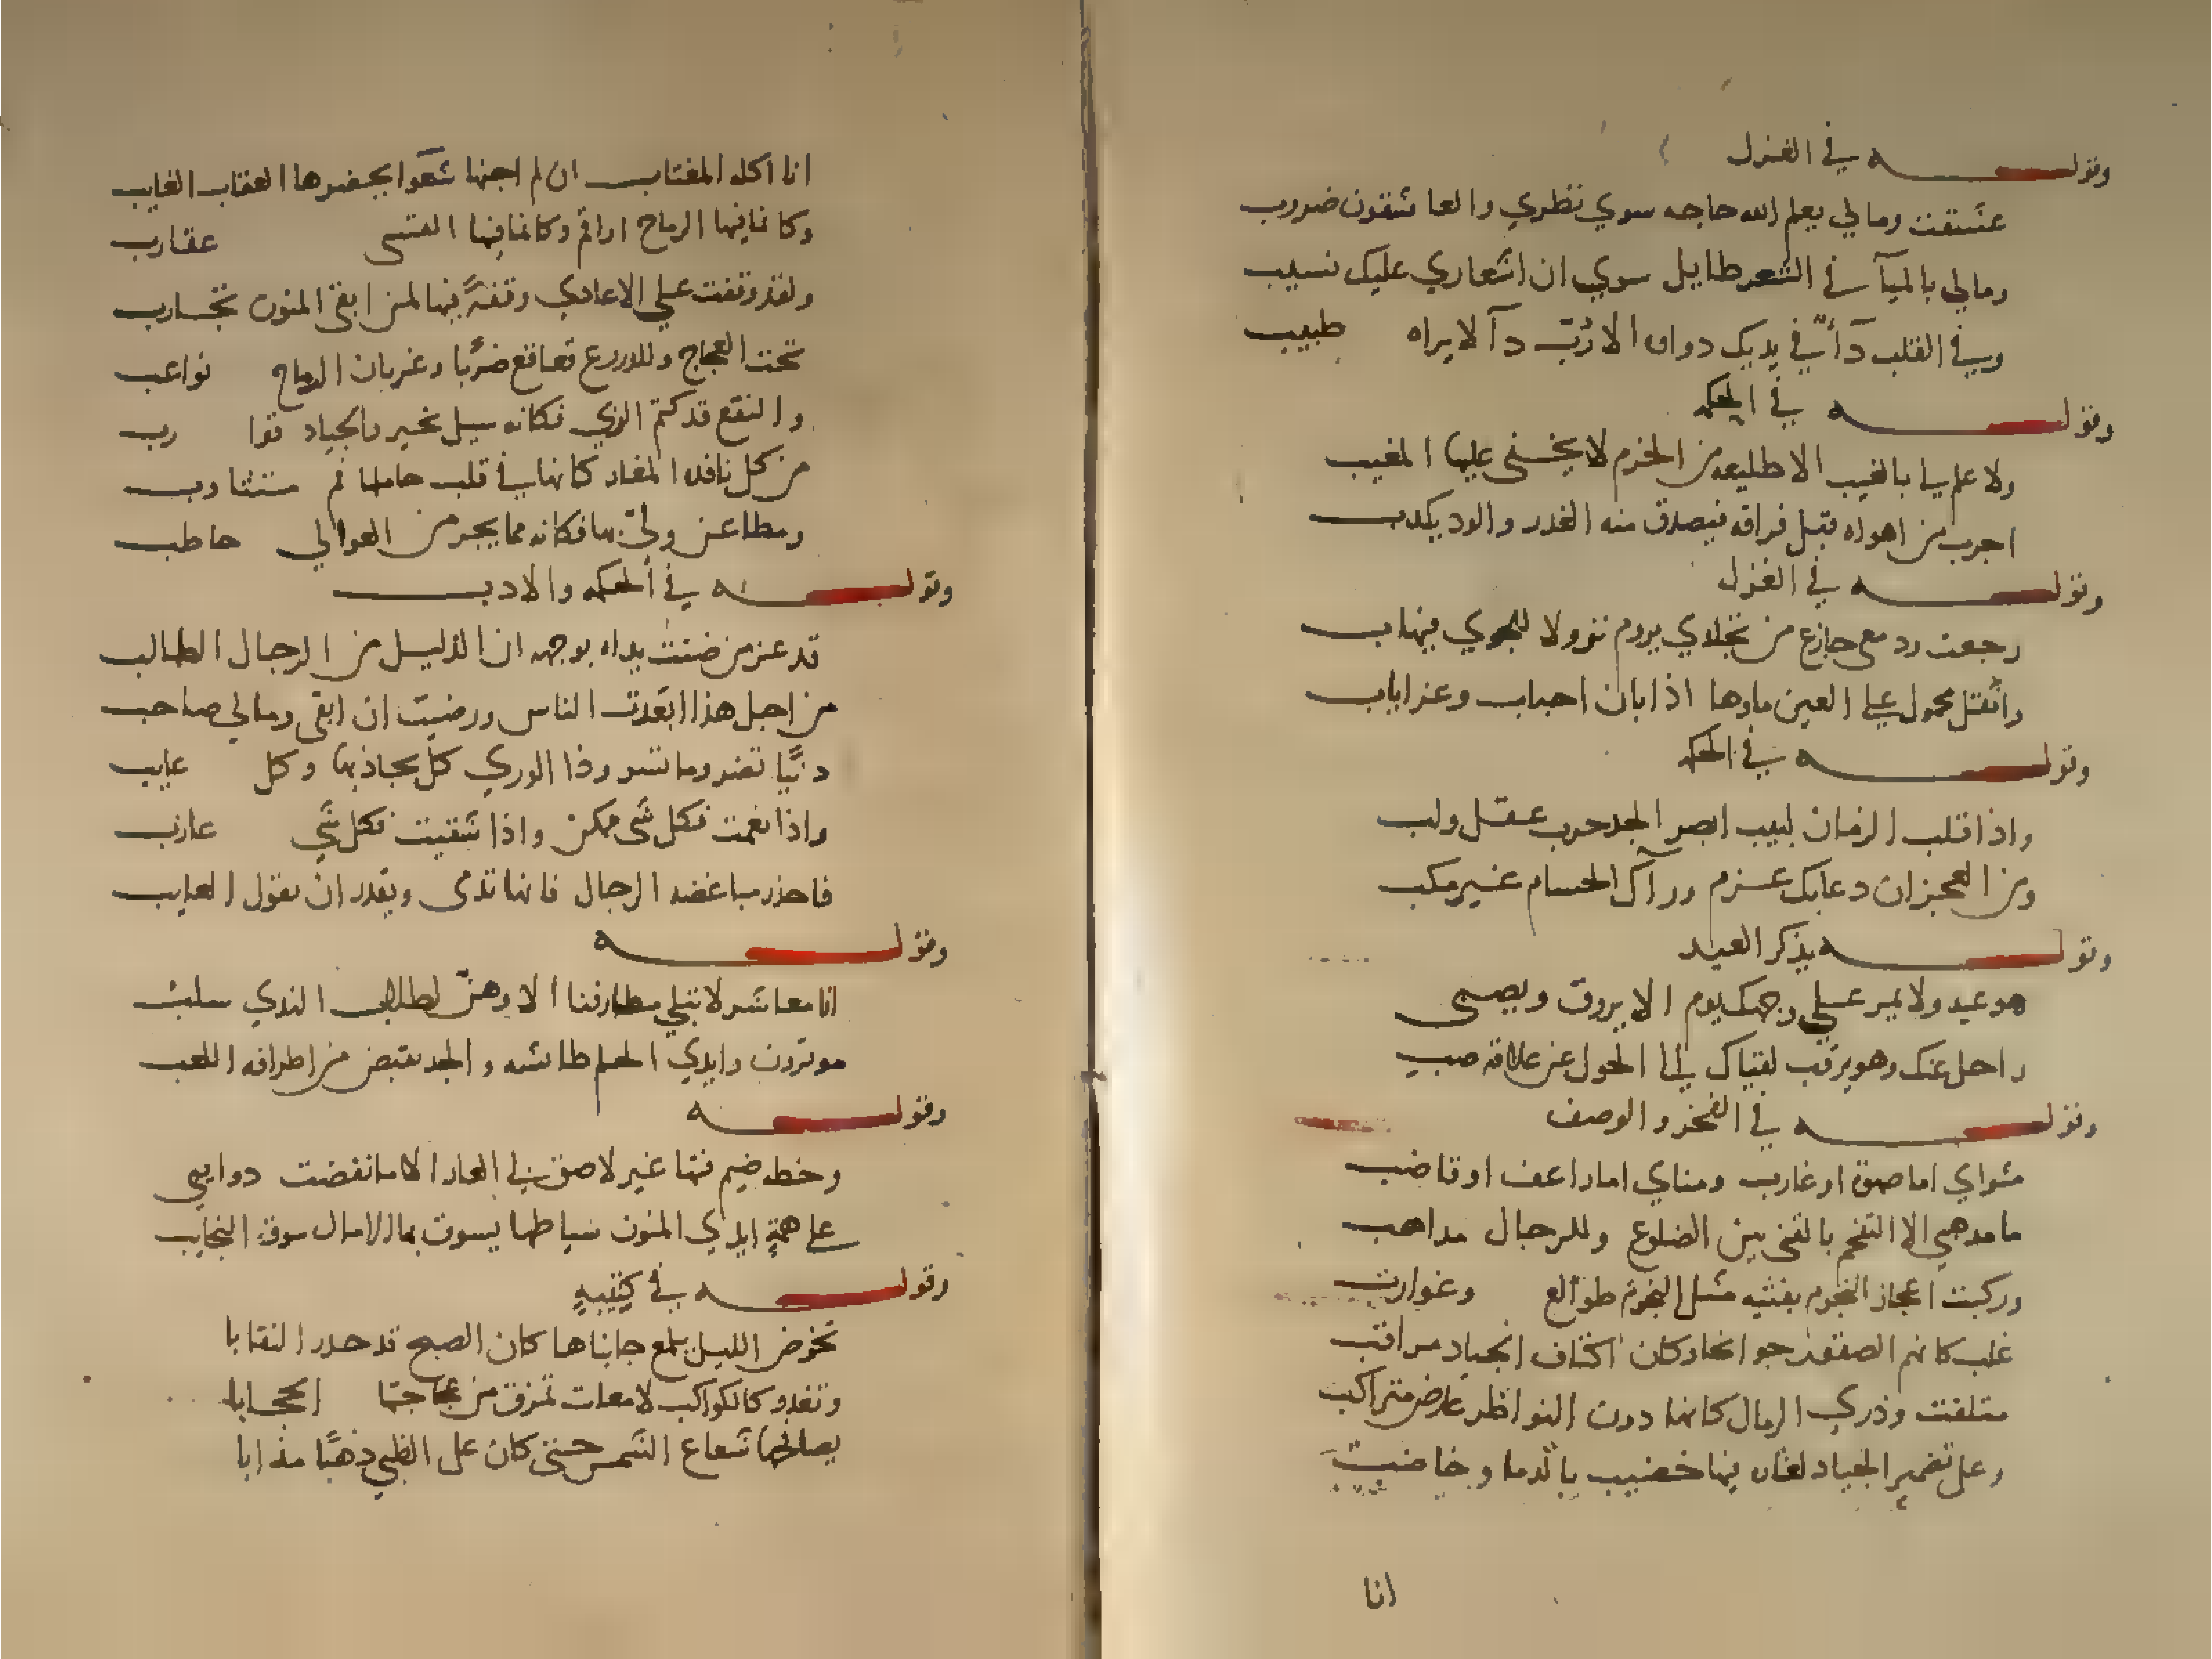 وقوله في الغزل
عشقت ومالي يعلم الله حاجه سوي نظري والعاشقون ضروب
ومالي بالميآ في الشعر طايل سوي ان اشعاري عليك نسيب
وفي القلب دآ في يديك دواه الا رُبّ دآ لا يراه طبيب
وقوله في الحكمه
ولا علم لي بالغيب الا طليعه من الحزم لا يخفى عليها المغيب
اجرب من اهواه قبل فراقه فيصدق منه الغدر والود يكذب
وقوله في الغزل
رجعت ودمعي جازع من تجلدي يروم نزولا للجوي فيهاب
واثقل محمول علي العين ماوها اذا بان احباب وعز اياب
وقوله في الحكمه
واذا قلب الزمان لبيب ابصر الجد حرب عقل ولب
ومن العجز ان دعا بك عزم ورآك الحسام غير مكب
وقوله يذكر العيد
هو عيد ولا يمر علي وجهك يوم الا يروق ويصبى
راحل عنك وهو يرقب لقياك الي الحول عن علاقه صب
وقوله في الفخر والوصف
مثواي اما صهوة او غارب ومناي اما راعف او قاضب
ما مدهبي الا التقحم بالقنى بين الضلوع وللرجال مداهب
وركبت اعجاز النجوم بفتيه مثل النجوم طوالع وغوارب
غلب كانهم الصقور جوانحا وكان اكتاف الجياد مراقب
متلفت وذري الرمال كانها دون النواظر عارض متراكب
وعلي تضمير الجياد لغاه فيها خضيب بالدما وخاضب
انا
انا اكله المغتاب ان لم اجنها شعوا يحضرها العقاب الغايب
وكانما فيها الرماح اراقم وكانما فيها القسى عقارب
ولقد وقفت علي الاعادي وقفةً فيها لمن ابقى المنون تجارب
تحت العجاج وللدروع قعاقع ضربا وغربان الرماح نواعب
والنقع قد كتم الربي فكانه سيل تحير بالجياد قوارب
من كل نافده المغار كانها في قلب حاملها فم متثاوب
ومطاعن ولي بها فكانه مما يجر من العوالي حاطب
وقوله في الحكمه والادب
قد عز من ضنت يداه بوجهه ان الذليل من الرجال الطالب
من اجل هذا ابعدت الناس ورضيت ان ابقى ومالي صاحب
دنيا تضر وما تسر وذا الوري كل يجاذبها وكل عايب
واذا نعمت فكل شي ممكن واذا شقيت فكل شي عازب
فاحذر مباغضه الرجال فانها تدمى ويقدر ان يقول العايب
وقوله
انا معاشر لا تبلي مطارفنا الا وهن لطلاب الندي سلب
موترون وايدي الحلم طائشه والجد يقبض من اطرافه اللعب
وقوله
وخطه ضيم فتها غير لاصق بي العار الا ما نفضت دوايبي
علي همة ايدي المنون سياطها يسوق بها الامال سوق النجايب
وقوله في كتيبه
تخوض الليل يلمع جانباها كان الصبح قد حدر النقابا
وتغدو كالكواكب لامعات تمزق من عجاجتها الحجابا
يصافحها شعاع الشمس حتى كان علي الظبي ذهبًا مذابا